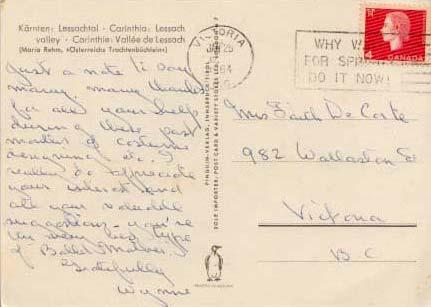 Kärnten: Lessachtal · Carinthia: Lessach
valley · Carinthie: Vallée de Lessach
(Maria Rehm, »Österreichs Trachtenbüchlein«)
Just a note to say
many, many thanks
for all your help
during these past
months of costume
designing etc. I
really do appreciate
your interest and
all your valuable
suggestions - you're
the very best type
of Ballet Mother!
Gratefully
Wynne
PINGUIN-VERLAG, INNSBRUCK/TIROL
SOLE IMPORTER: POST CARD & VARIETY STORES LTD.
VICTORIA
25
64
WHY WAIT
FOR SPRING
DO IT NOW!
4
CANADA
Mrs Faith De Coste
982 Wollaston St
Victoria
B C